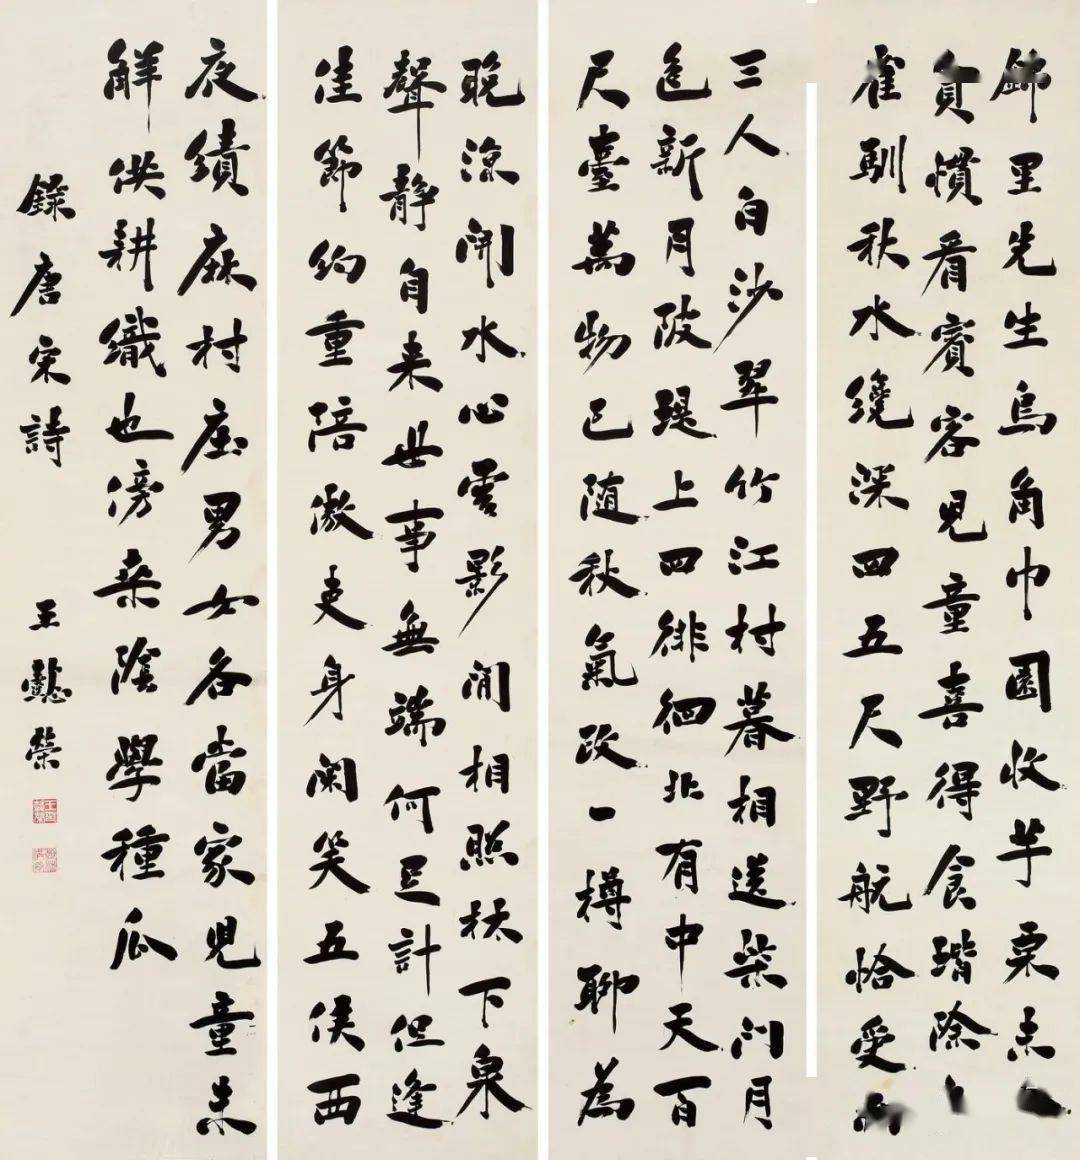 錦里先生烏角巾園收芋栗未
貧慣看賓客兒童喜得食階除
雀馴秋水繞深四五尺野航恰受
三人白沙翠竹江村暮相送柴門月
色新月陂堤上四徘徊北有中天百
尺臺萬物已随秋氣改一樽聊為
晚涼開水心雲影閒相照林下泉
聲静自来世事無端何足計但逢
佳節約重陪傲吏身閑笑五侯西
夜績麻村庄男女各當家兒童未
解供耕織也傍桑陰學種瓜
錄唐宋詩
王懿榮